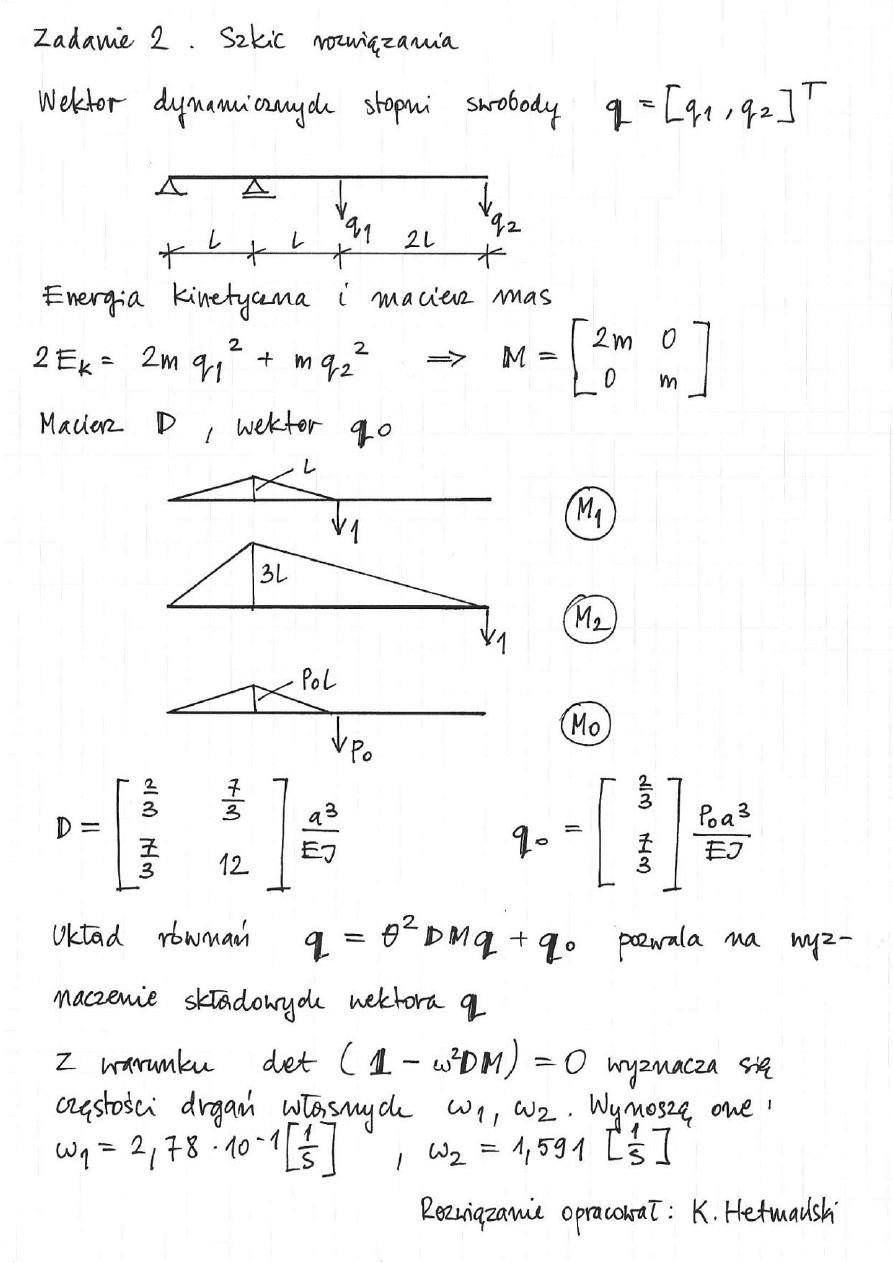 Zadanie 2 . Szkic rozwiązania
Wektor dynamicznych stopni swobody q = [q1 , q2]T
q1
q2
L L 2L
Energia kinetyczna i macierz mas
2Ek = 2m q1² + m q2² => M = [2m 0
0 m]
Macierz D , wektor q0
L
1
M1
3L
1
M2
P0L
P0
M0
D = [2/3 7/3
7/3 12] a³/EJ
q0 = [2/3
7/3] P0a³/EJ
Układ równań q = θ²DMq + q0 pozwala na wyz-
naczenie składowych wektora q
Z warunku det (1 - ω²DM) = 0 wyznacza się
częstości drgań własnych ω1, ω2. Wynoszą one:
ω1 = 2,78 · 10-1 [1/s] , ω2 = 1,591 [1/s]
Rozwiązanie opracował: K. Hetmański